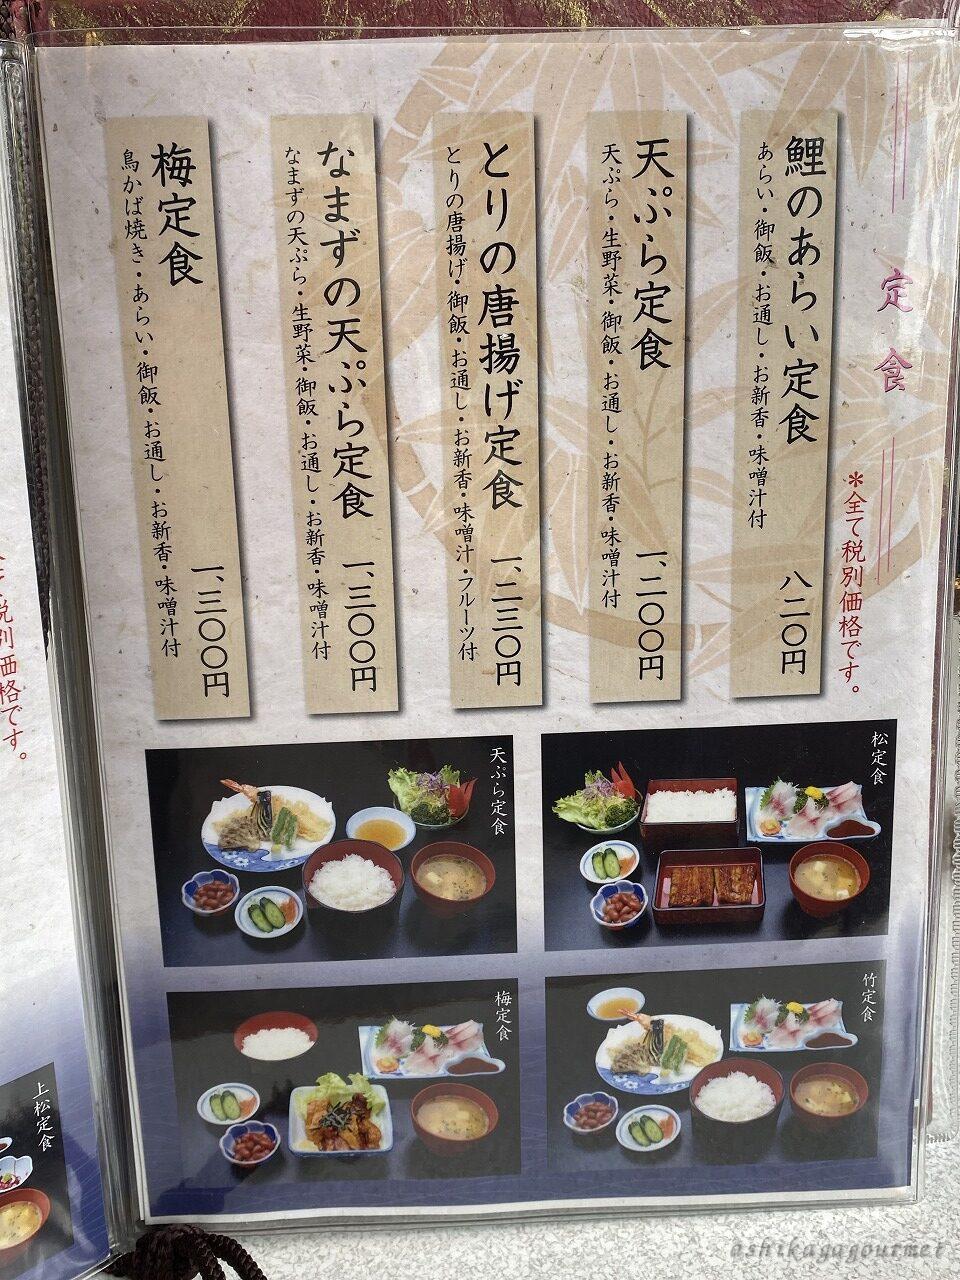 定食
＊全て税別価格です。
鯉のあらい定食
あらい・御飯・お通し・お新香・味噌汁付
八二〇円
天ぷら定食
天ぷら・生野菜・御飯・お通し・お新香・味噌汁付
一、二〇〇円
とりの唐揚げ定食
とりの唐揚げ・御飯・お通し・お新香・味噌汁・フルーツ付
一、二三〇円
なまずの天ぷら定食
なまずの天ぷら・生野菜・御飯・お通し・お新香・味噌汁付
一、三〇〇円
梅定食
鳥かば焼き・あらい・御飯・お通し・お新香・味噌汁付
一、三〇〇円
松定食
天ぷら定食
竹定食
梅定食
税別価格です。
上松定食
ashikagagourmet